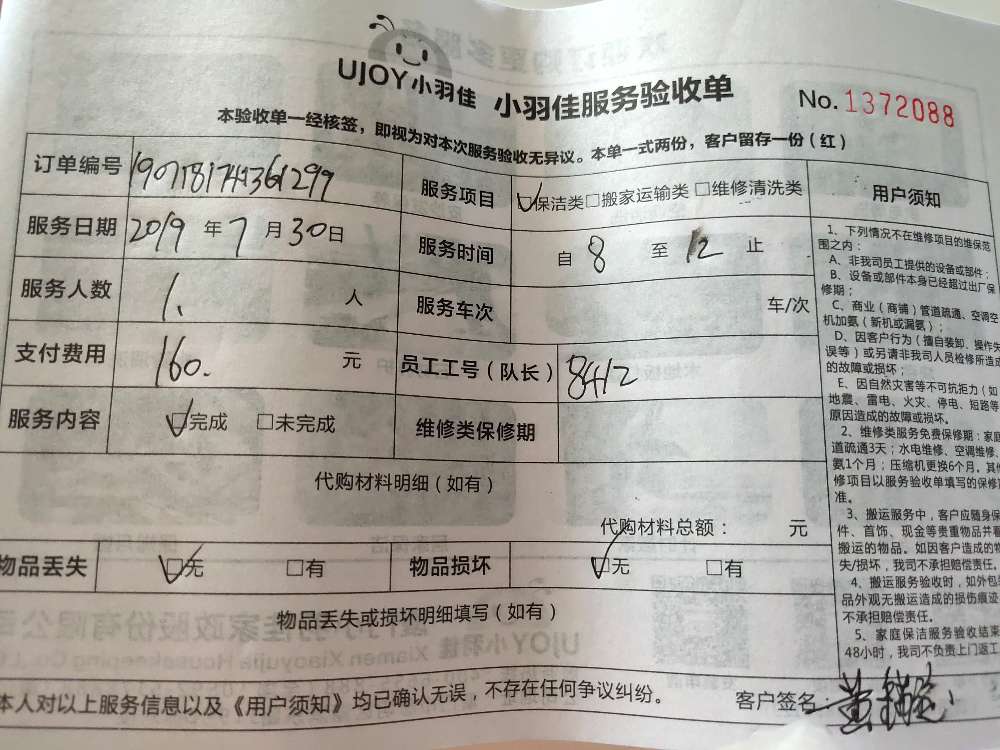 UJOY小羽佳 小羽佳服务验收单 No.1372088
本验收单一经核签，即视为对本次服务验收无异议。本单一式两份，客户留存一份（红）
订单编号 服务项目 保洁类 搬家运输类 维修清洗类
服务日期 2019年7月30日 服务时间 自8至12止
服务人数 1.人 服务车次 车/次
支付费用 160.元 员工工号（队长） 8412
服务内容 完成 未完成 维修类保修期
代购材料明细（如有）
代购材料总额： 元
物品丢失 无 有 物品损坏 无 有
物品丢失或损坏明细填写（如有）
本人对以上服务信息以及《用户须知》均已确认无误，不存在任何争议纠纷。 客户签名
用户须知
1、下列情况不在维修项目的维保范
围之内：
A、非我司员工提供的设备或部件；
B、设备或部件本身已经超过出厂保
修期；
C、商业（商铺）管道疏通、空调空
机加氨（新机或漏氨）；
D、因客户行为（擅自装卸、操作失
误等）或另请非我司人员检修所造成
的故障或损坏；
E、因自然灾害等不可抗拒力（如
地震、雷电、火灾、停电、短路等
原因造成的故障或损坏。
2、维修类服务免费保修期：家庭
道疏通3天；水电维修、空调维修、
氨1个月；压缩机更换6个月。其他
修项目以服务验收单填写的保修
准。
3、搬运服务中，客户应随身保
件、首饰、现金等贵重物品并
搬运的物品。如因客户造成的物
失/损坏，我司不承担赔偿责任。
4、搬运服务验收时，如外包
品外观无搬运造成的损伤痕迹
不承担赔偿责任。
5、家庭保洁服务验收结束
48小时，我司不负责上门返工